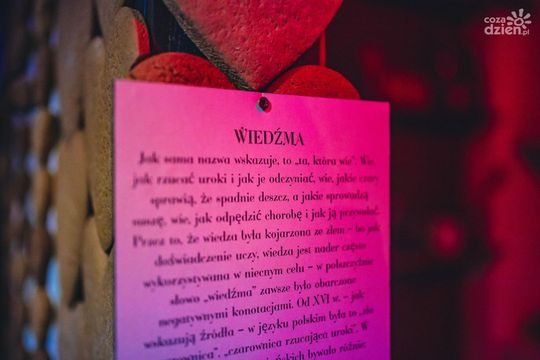 coza
dzien.pl
WIEDŹMA
Jak sama nazwa wskazuje, to „ta, która wie”. Wie,
jak rzucać uroki i jak je odczyniać, wie, jakie czary
sprawią, że spadnie deszcz, a jakie sprowadzą
suszę, wie, jak odpędzić chorobę i jak ją przywołać.
Przez to, że wiedza była kojarzona ze złem – bo jak
doświadczenie uczy, wiedza jest nader często
wykorzystywana w niecnym celu – w polszczyźnie
słowo „wiedźma” zawsze było obarczone
negatywnymi konotacjami. Od XVI w. – jak
wskazują źródła – w języku polskim była to „zła
czarownica”, „czarownica rzucająca uroki”. W
bywało różnie: